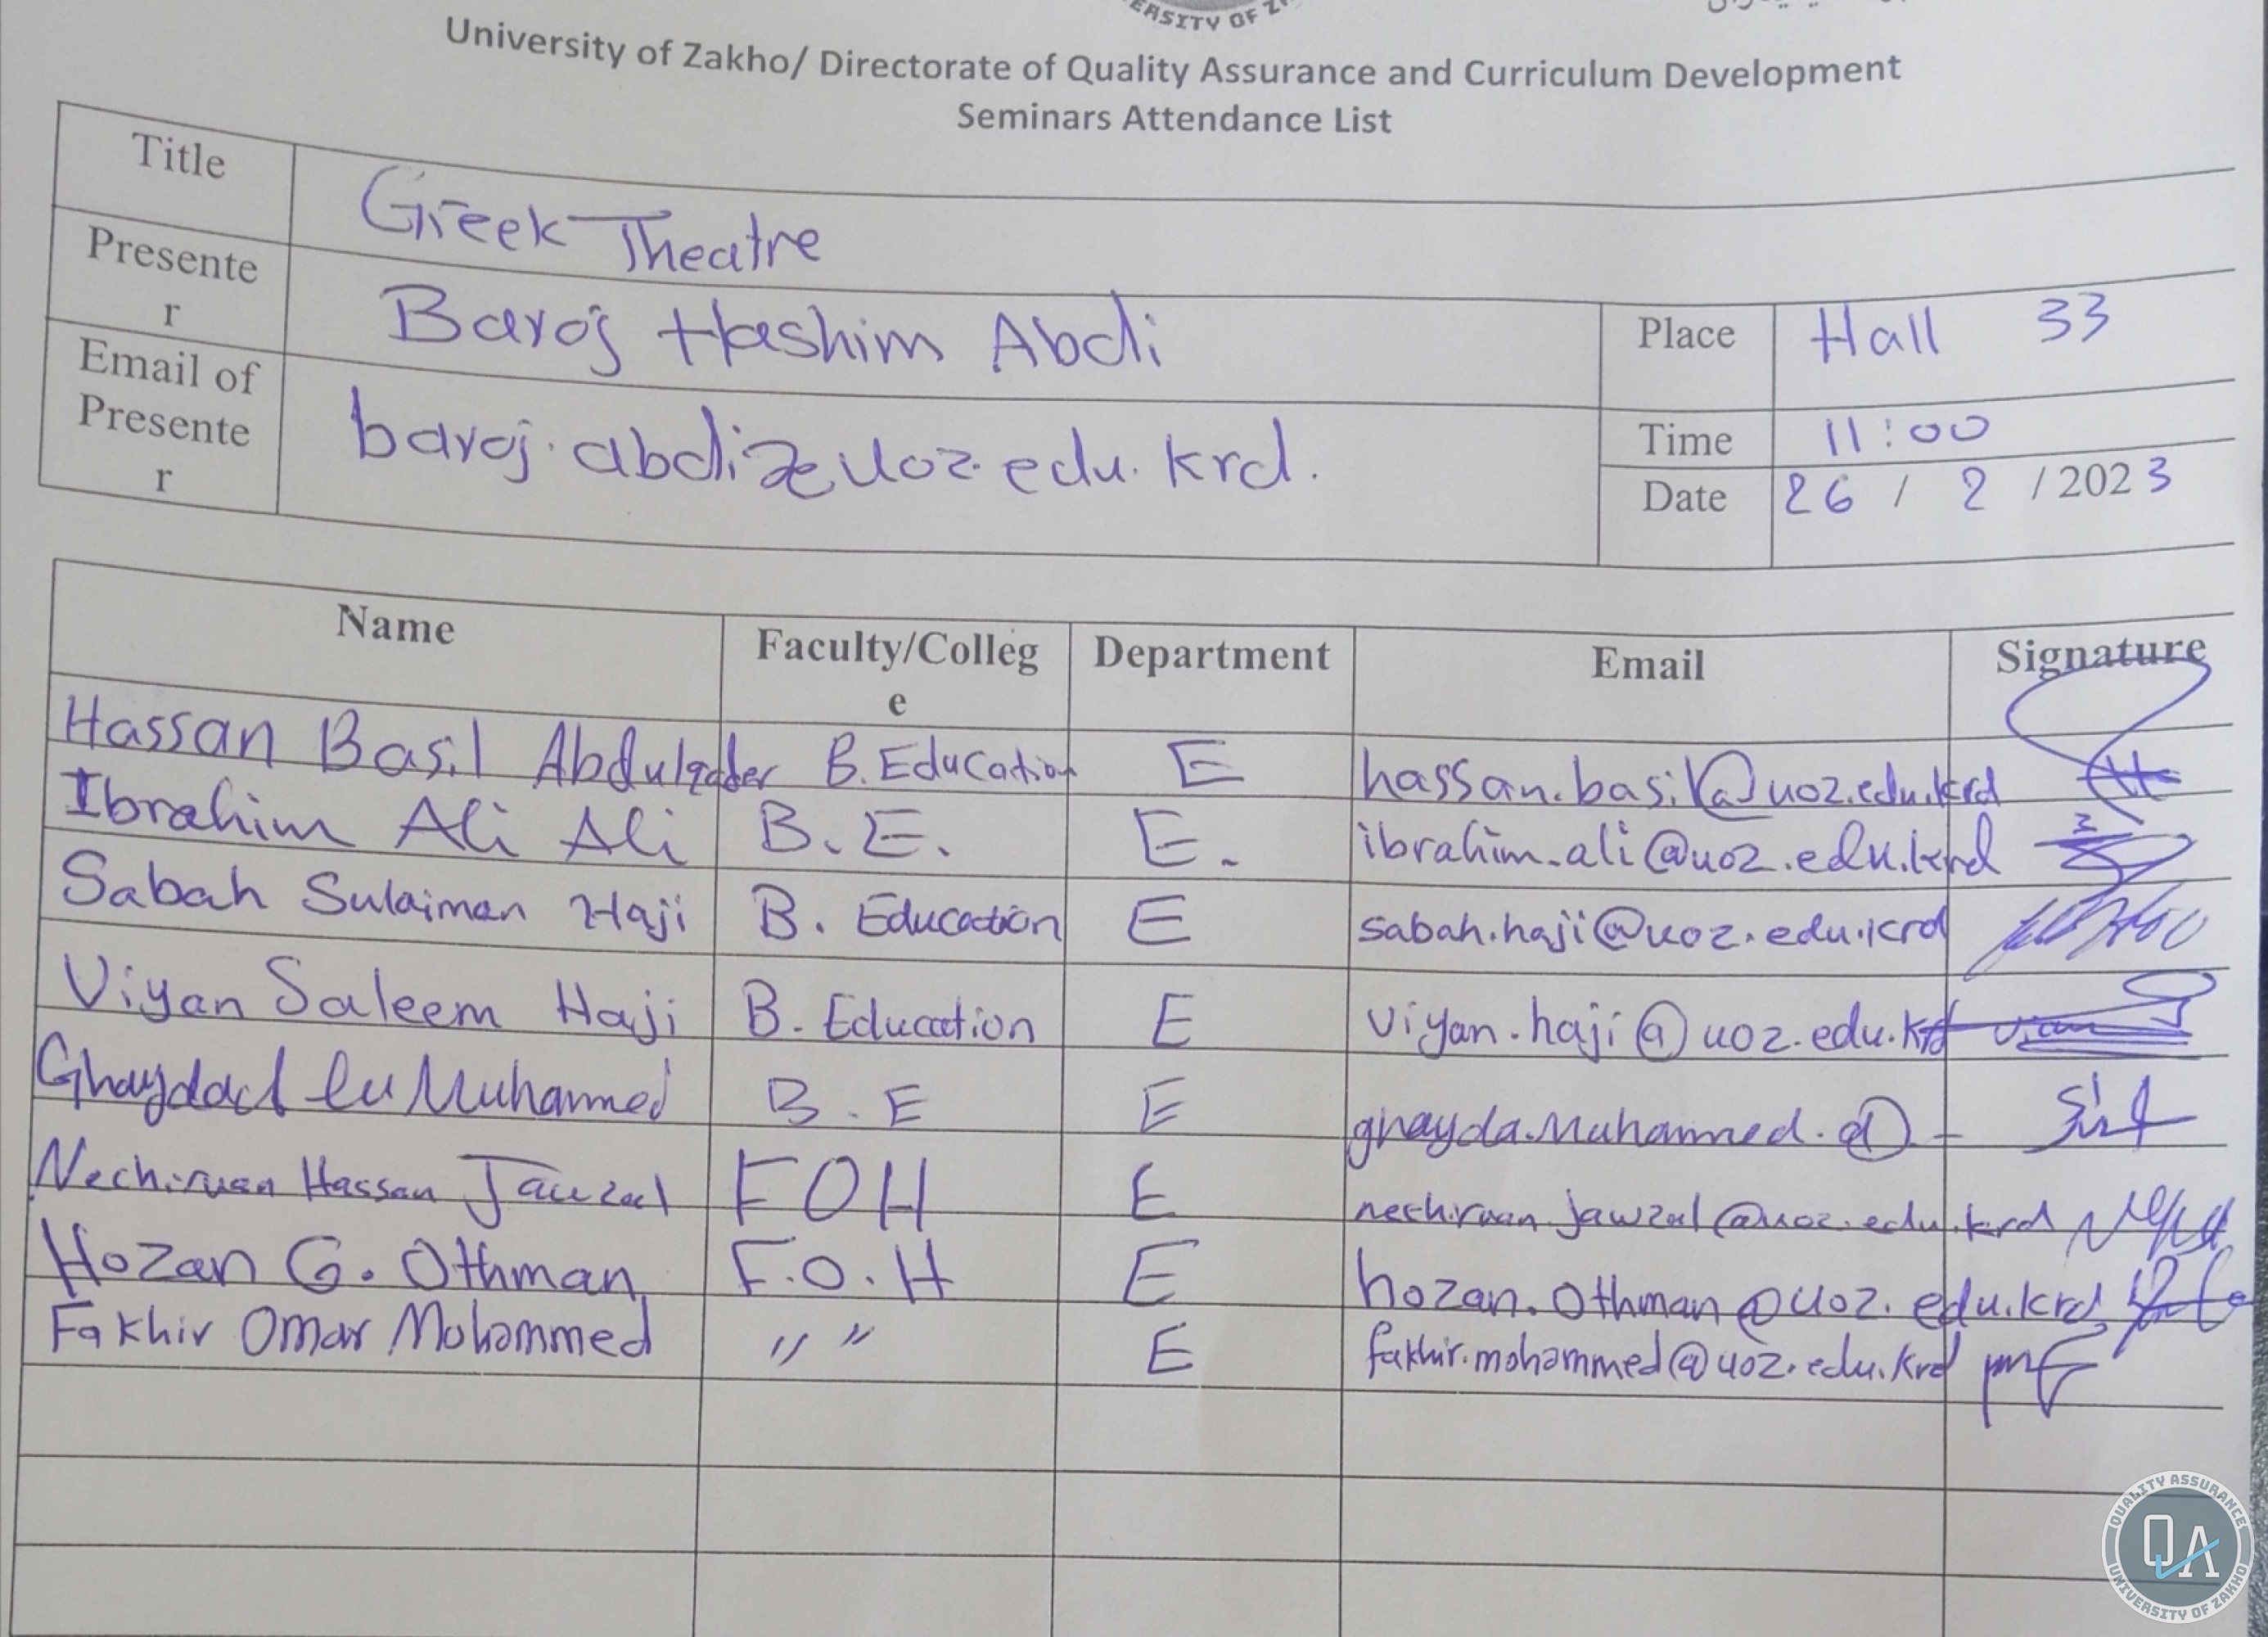 ERSITY OF Z
University of Zakho/ Directorate of Quality Assurance and Curriculum Development
Seminars Attendance List
Title Greek Theatre
Presente
r Baroj Hashim Abdi Place Hall 33
Email of
Presente
r baroj.abdi@uoz.edu.krd. Time 11:00
Date 26 / 2 / 2023
Name Faculty/Colleg
e Department Email Signature
Hassan Basil Abdulqader B. Education E hassan.basil@uoz.edu.krd
Ibrahim Ali Ali B. E. E. ibrahim.ali@uoz.edu.krd
Sabah Sulaiman Haji B. Education E sabah.haji@uoz.edu.krd
Viyan Saleem Haji B. Education E viyan.haji@uoz.edu.krd
Muhammed B. E E ghayda.Muhammed.@
Nechirvan Hassan Jawzal FOH E nechirvan.jawzal@uoz.edu.krd
Hozan G. Othman F.O.H E hozan.Othman@uoz.edu.krd
Fakhir Omar Mohammed " " E fakhir.mohammed@uoz.edu.krd
QUALITY ASSURANCE
QA
UNIVERSITY OF ZAKHO